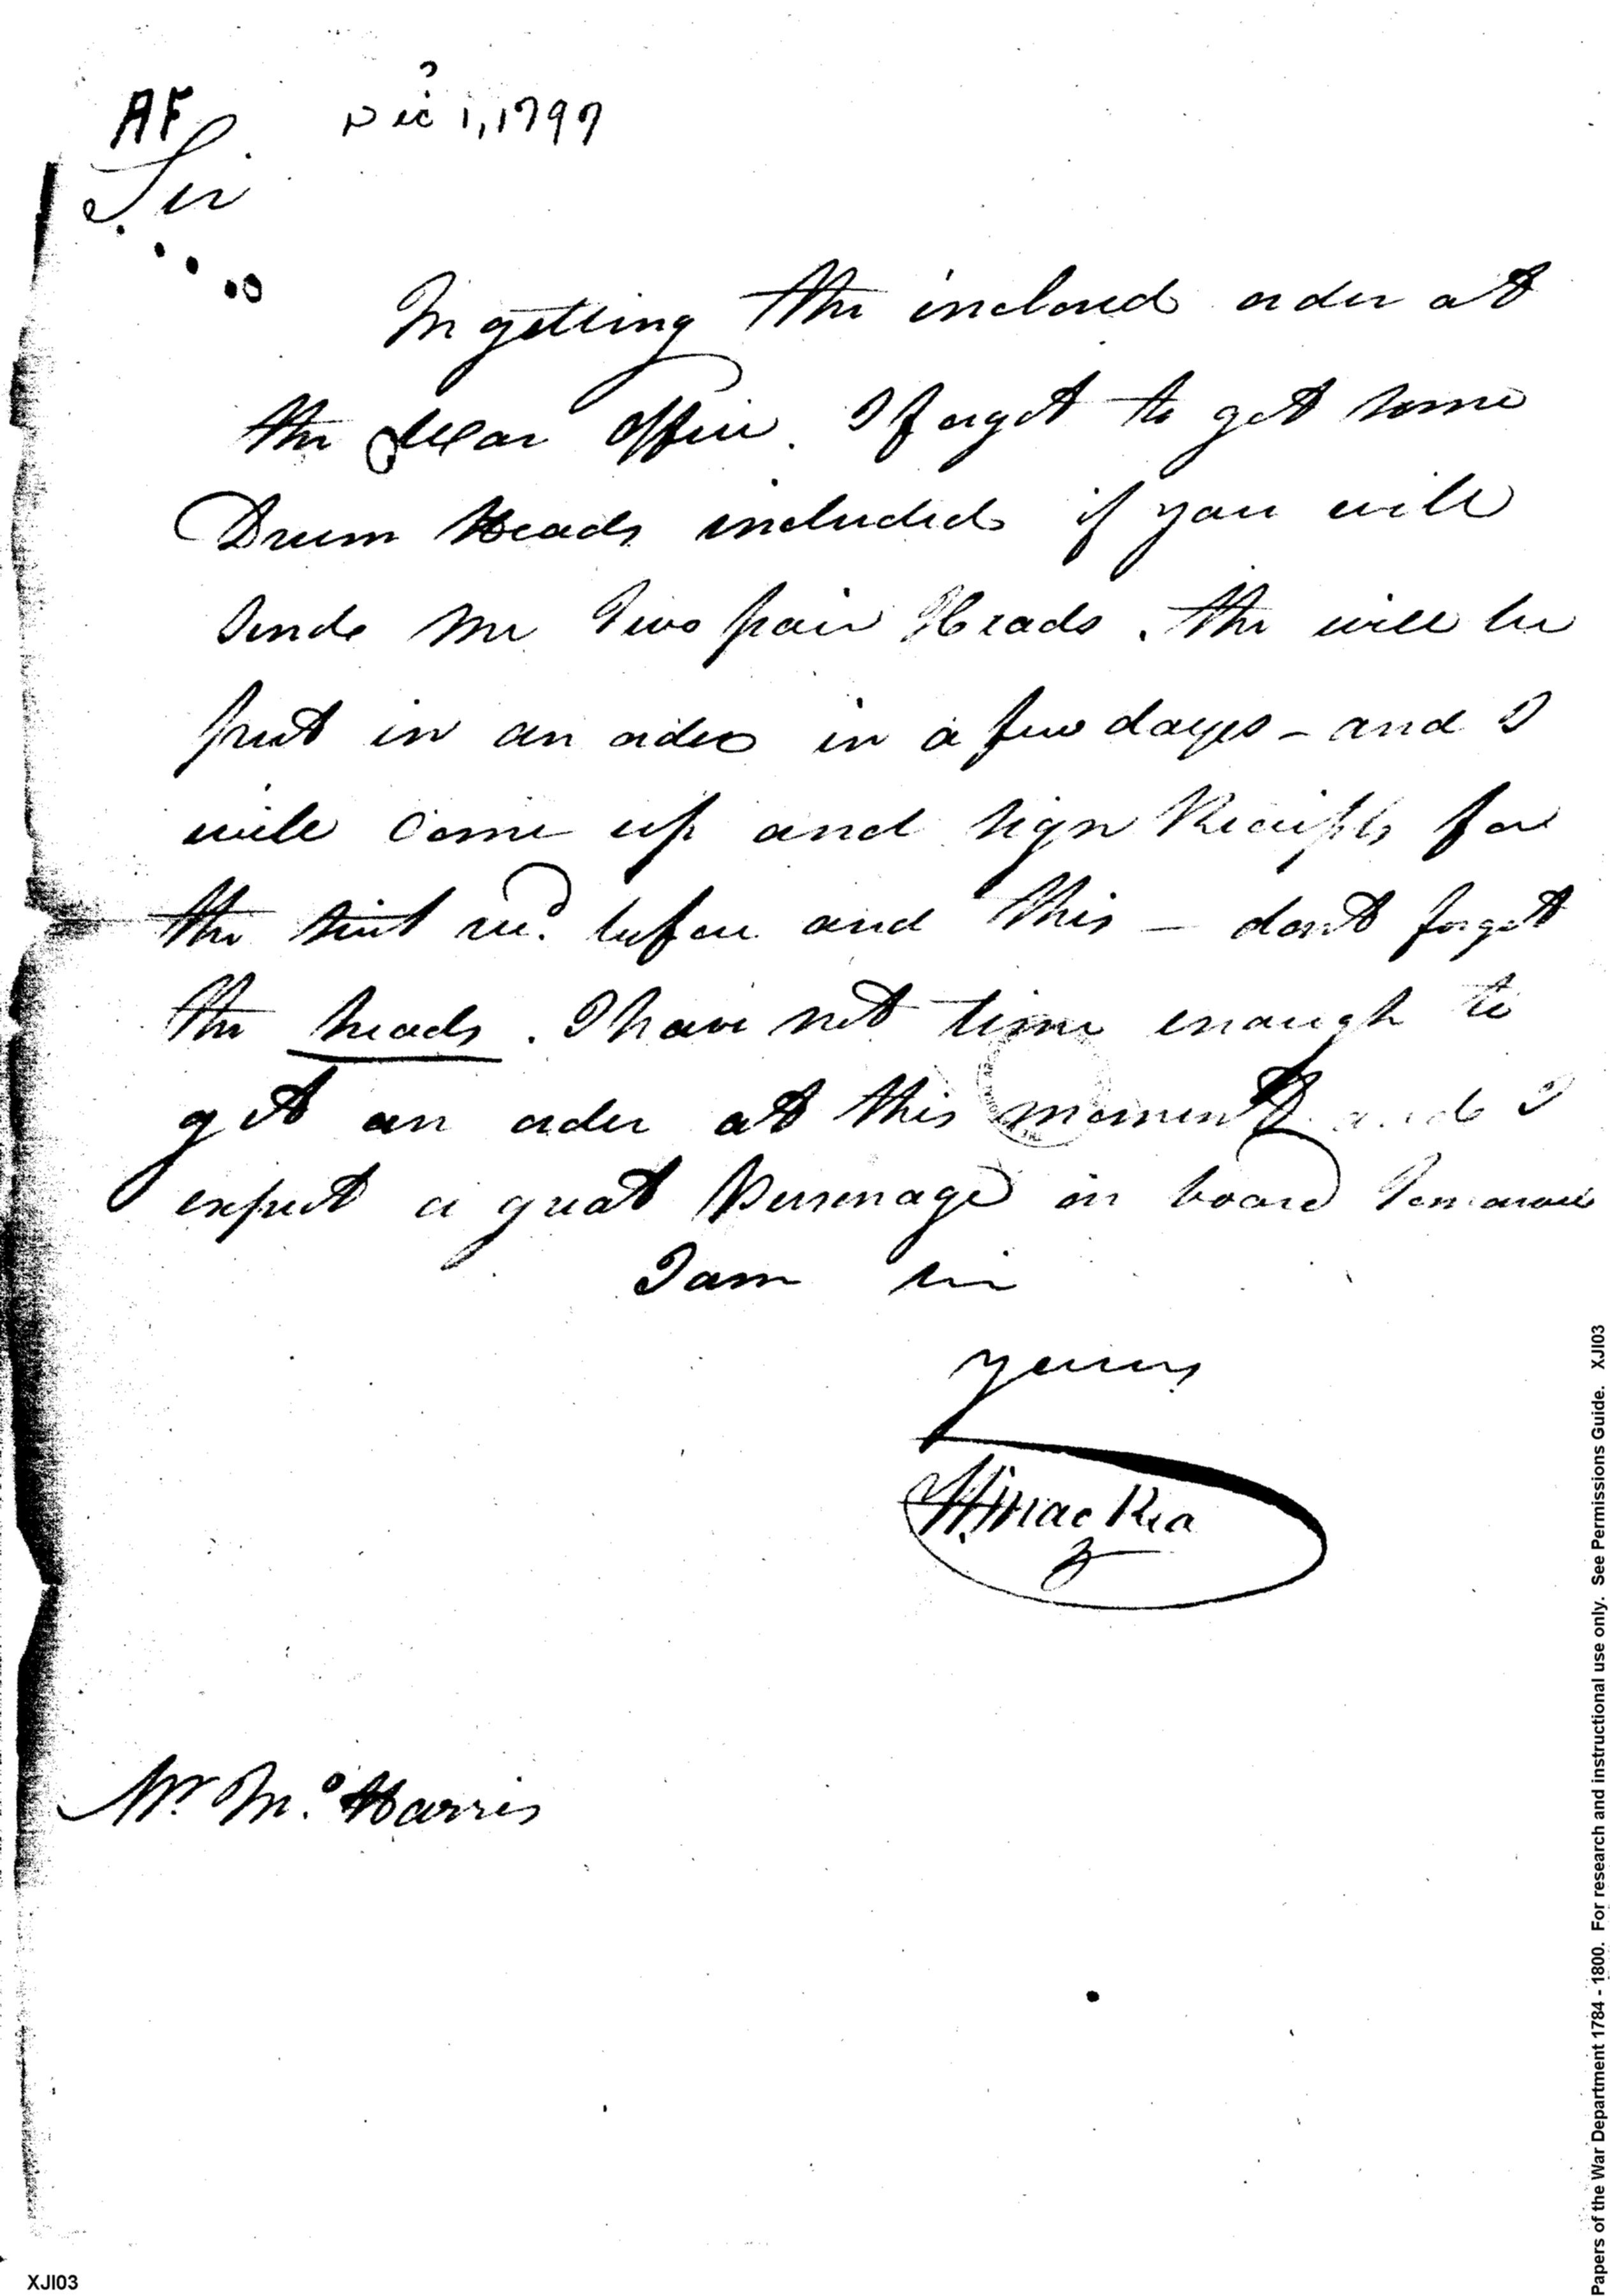 ?
AF Dec 1, 1797
Sir
In getting the inclosed order at
the War Office. I forgot to get some
Drum Heads included if you will
send me Two pair Heads. the will be
put in an order in a few days - and I
will come up and sign Receipts for
the tent recd. before and this — dont forget
the heads. I have not time enough to
get an order at this moment and I
expect a great Personage on board Tomarow
I am sir
yours
WmacRea
Mr. Mo. Harris
XJI03
Papers of the War Department 1784 - 1800. For research and instructional use only. See Permissions Guide. XJI03